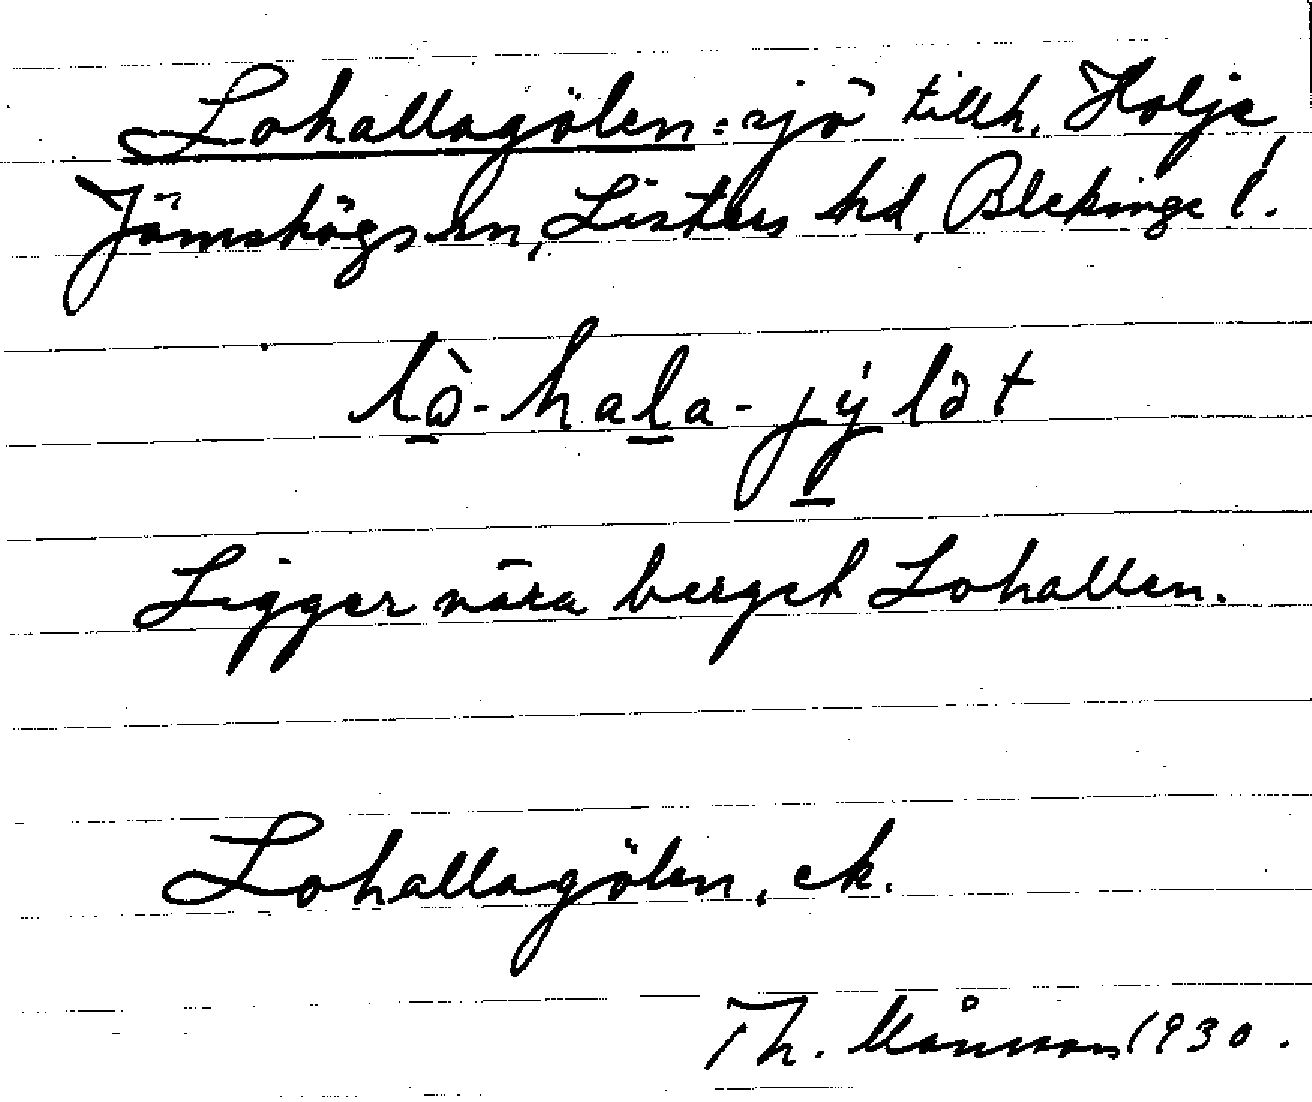 Lohallagölen = sjö tillh. Holje,
Jämshögs sn, Listers hd, Blekinge l.
lò-hala-jýlət
Ligger nära berget Lohallen.
Lohallagölen, ek.
Th. Månsson 1930.